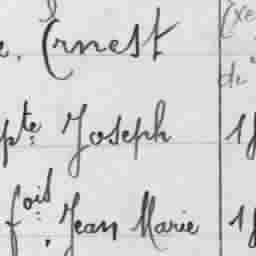 e, Ernest
pte Joseph
fois, Jean Marie